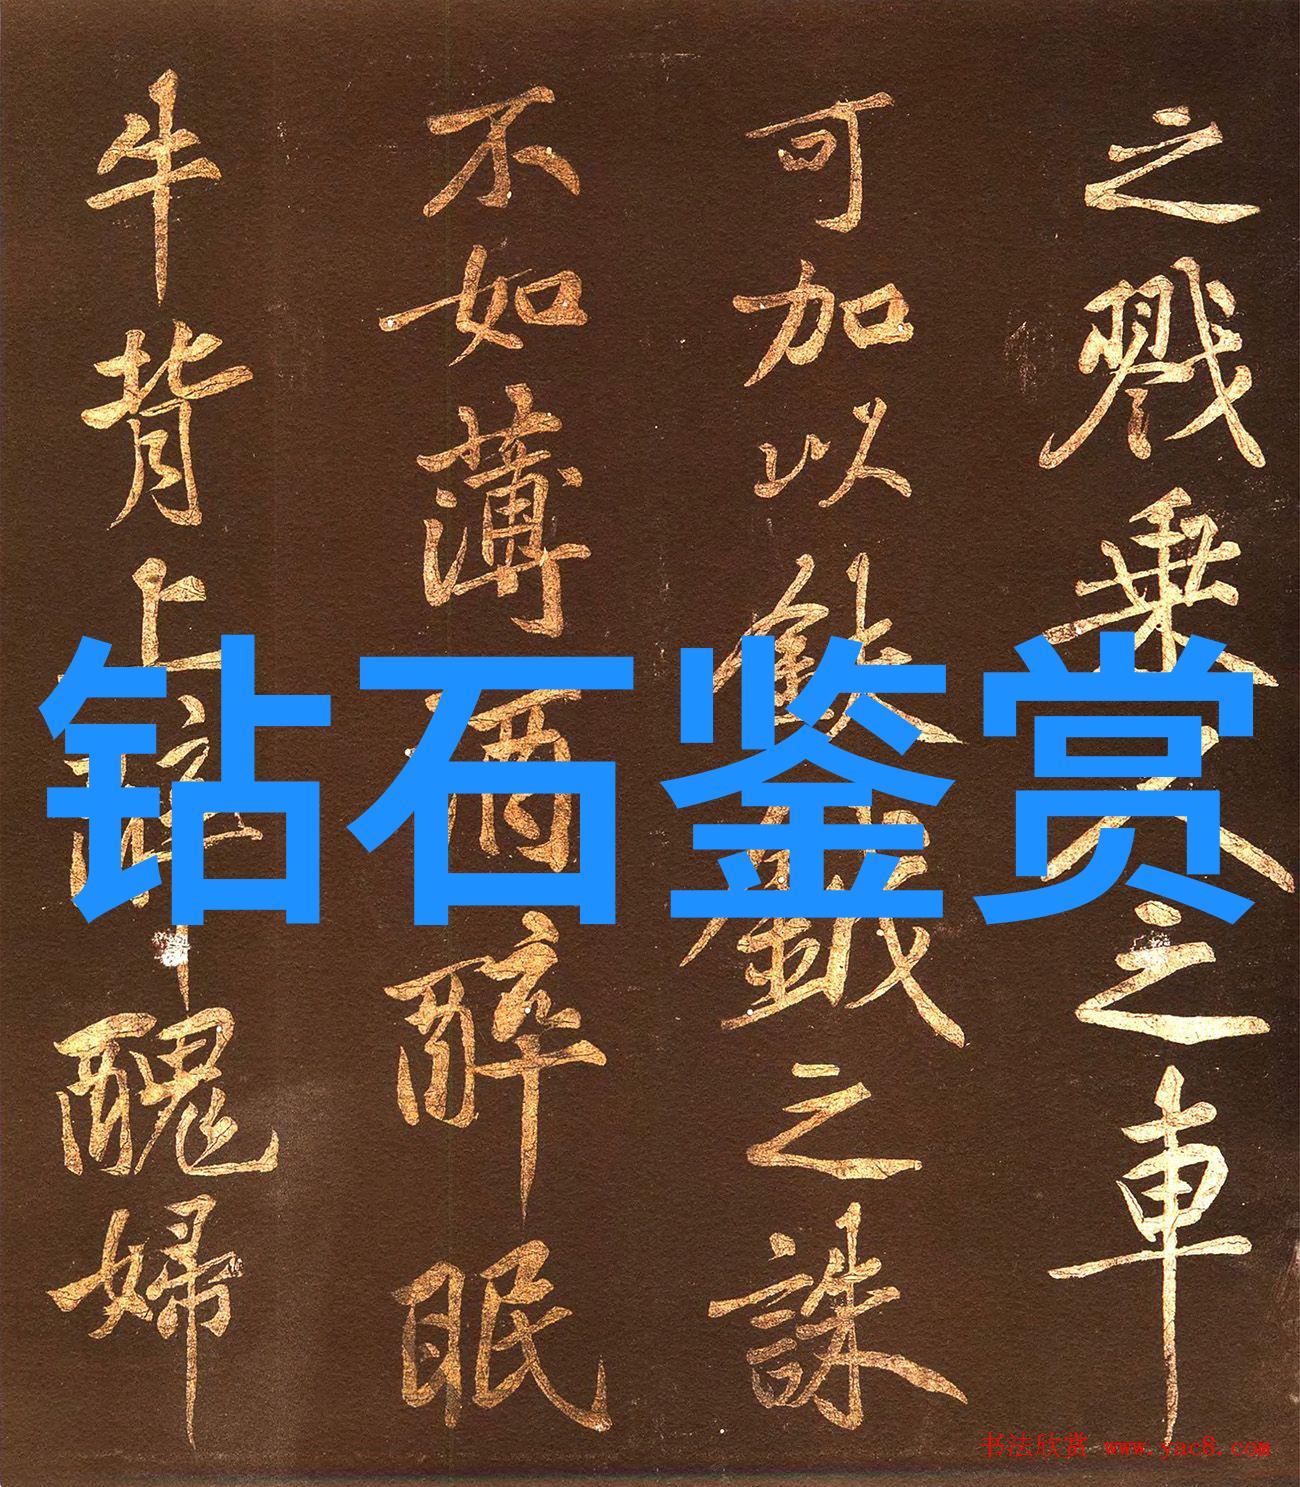 之戮乘人之車
可加以鈇鉞之誅
不如薄酒醉眠
牛背上醉醜婦
钻石鉴赏
书法欣赏 www.yac8.com